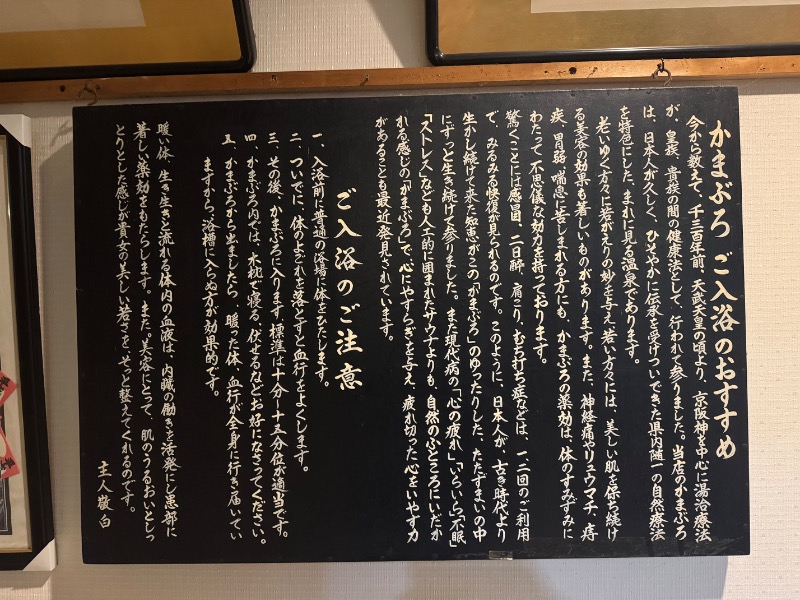 かまぶろ ご入浴のおすすめ
今から数えて、千三百年前、天武天皇の頃より、京阪神を中心に湯治療法
が、皇族、貴族の間の健康法として、行われて参りました。当店のかまぶろ
は、日本人が久しく、ひそやかに伝承を受けついできた県内随一の自然療法
を特色にした、まれに見る温泉であります。
老いゆく方々に若がえりの妙を与え、若い方々には、美しい肌を保ち続け
る美容の効果も著しいものがあります。また、神経痛やリュウマチ、痔
疾、胃弱、喘息に苦しまれる方にも、かまぶろの薬効は、体のすみずみに
わたって不思議な効力を持っております。
驚くことには感冒、二日酔、肩こり、むちうち症などは、一、二回のご利用
で、みるみる快復が見られるのです。このように、日本人が、古き時代より
生かし続けて来た知恵がこの「かまぶろ」のゆったりした、たたずまいの中
にずっと生き続けて参りました。また現代病の「心の疲れ」「いらいら不眠」
「ストレス」なども人工的に囲まれたサウナよりも、自然のふところにいだか
れる感じの「かまぶろ」で、心にやすらぎを与え、疲れ切った心をいやす力
があることも最近発見されています。
ご入浴のご注意
一、入浴前に普通の浴場に体をひたします。
二、ついでに、体のよごれを落とすと血行をよくします。
三、その後、かまぶろに入ります。標準は十分〜十五分位が適当です。
四、かまぶろ内では、木枕で寝る、伏せるなどお好になさってください。
五、かまぶろから出ましたら、暖った体、血行が全身に行き届いてい
ますから、浴槽に入らぬ方が効果的です。
暖い体、生き生きと流れる体内の血液は、内臓の働きを活発にし患部に
著しい薬効をもたらします。また、美容にとって、肌のうるおいとしっ
とりとした感じが貴女の美しい若さを、そっと整えてくれるのです。
主人敬白